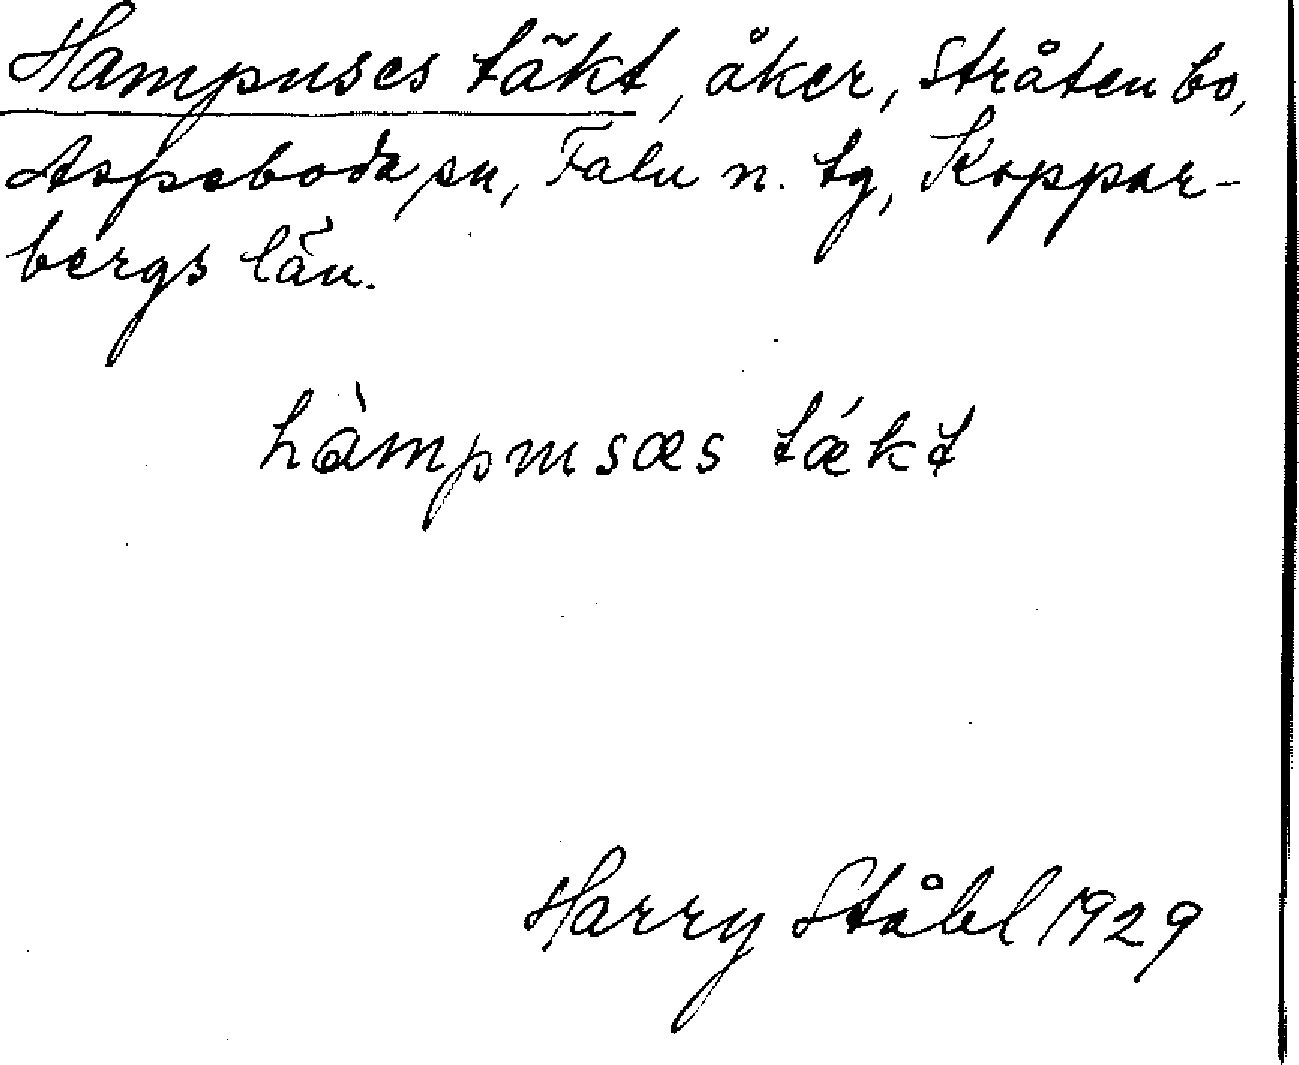 Hampuses täkt, åker, Stråtenbo,
Aspeboda sn, Falu n. tg, Koppar-
bergs län.
hàmpusæs tǽkt
Harry Ståhl 1929